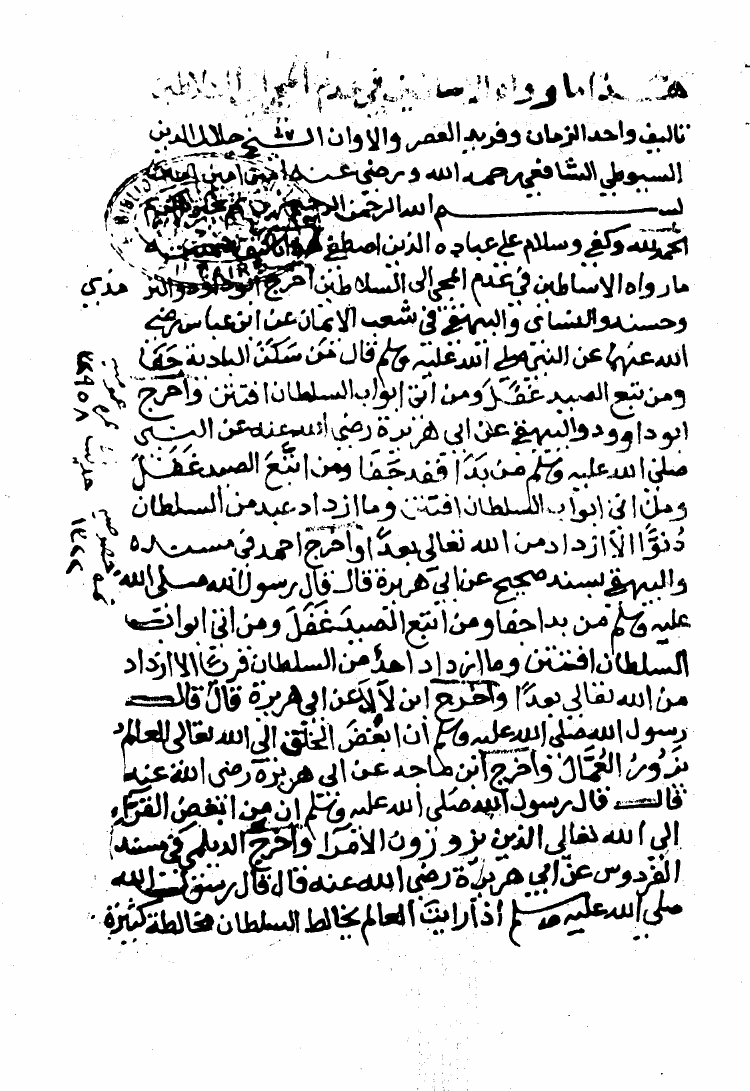 هذا ما رواه الاساطين في عدم المجي الى السلاطين
تاليف واحد الزمان وفريد العصر والاوان الشيخ جلال الدين
السيوطي الشافعي رحمه الله ورضي عنه امين امين امين
بسم الله الرحمن الرحيم
الحمد لله وكفى وسلام على عباده الذين اصطفى هذا
ما رواه الاساطين في عدم المجي الى السلاطين اخرج ابو داوود والترمذي
وحسنه والنساى والبيهقي في شعب الايمان عن ابن عباس رضي
الله عنهما عن النبي صلى الله عليه وسلم قال من سكن البادية جفا
ومن تبع الصيد غفل ومن اتى ابواب السلطان افتتن واخرج
ابو داوود والبيهقي عن ابى هريرة رضي الله عنه عن النبي
صلى الله عليه وسلم من بدا فقد جفا ومن اتبع الصيد غفل
ومن اتى ابواب السلطان افتتن وما ازداد عبد من السلطان
دنوا الا ازداد من الله تعالى بعدا واخرج احمد في مسنده
والبيهقي بسند صحيح عن ابي هريرة قال قال رسول الله صلى الله
عليه وسلم من بدا جفا ومن اتبع الصيد غفل ومن اتى ابواب
السلطان افتتن وما ازداد احد من السلطان قربا الا ازداد
من الله تعالى بعدا واخرج ابن لال عن ابى هريرة قال قال
رسول الله صلى الله عليه وسلم ان ابغض الخلق الى الله تعالى العالم
يزور العمال واخرج ابن ماجه عن ابى هريرة رضى الله عنه
قال قال رسول الله صلى الله عليه وسلم ان من ابغض القراء
الى الله تعالى الذين يزورون الامرا واخرج الديلمي في مسند
الفردوس عن ابي هريرة رضى الله عنه قال قال رسول الله
صلى الله عليه وسلم اذا رايت العالم يخالط السلطان مخالطة كثيرة